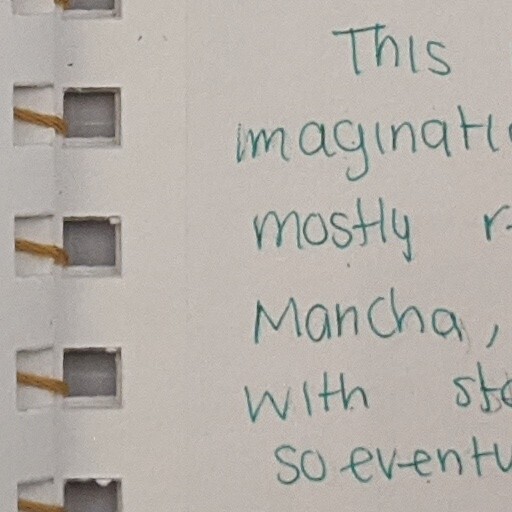 This
imaginati
mostly r
Mancha,
with sto
so eventu